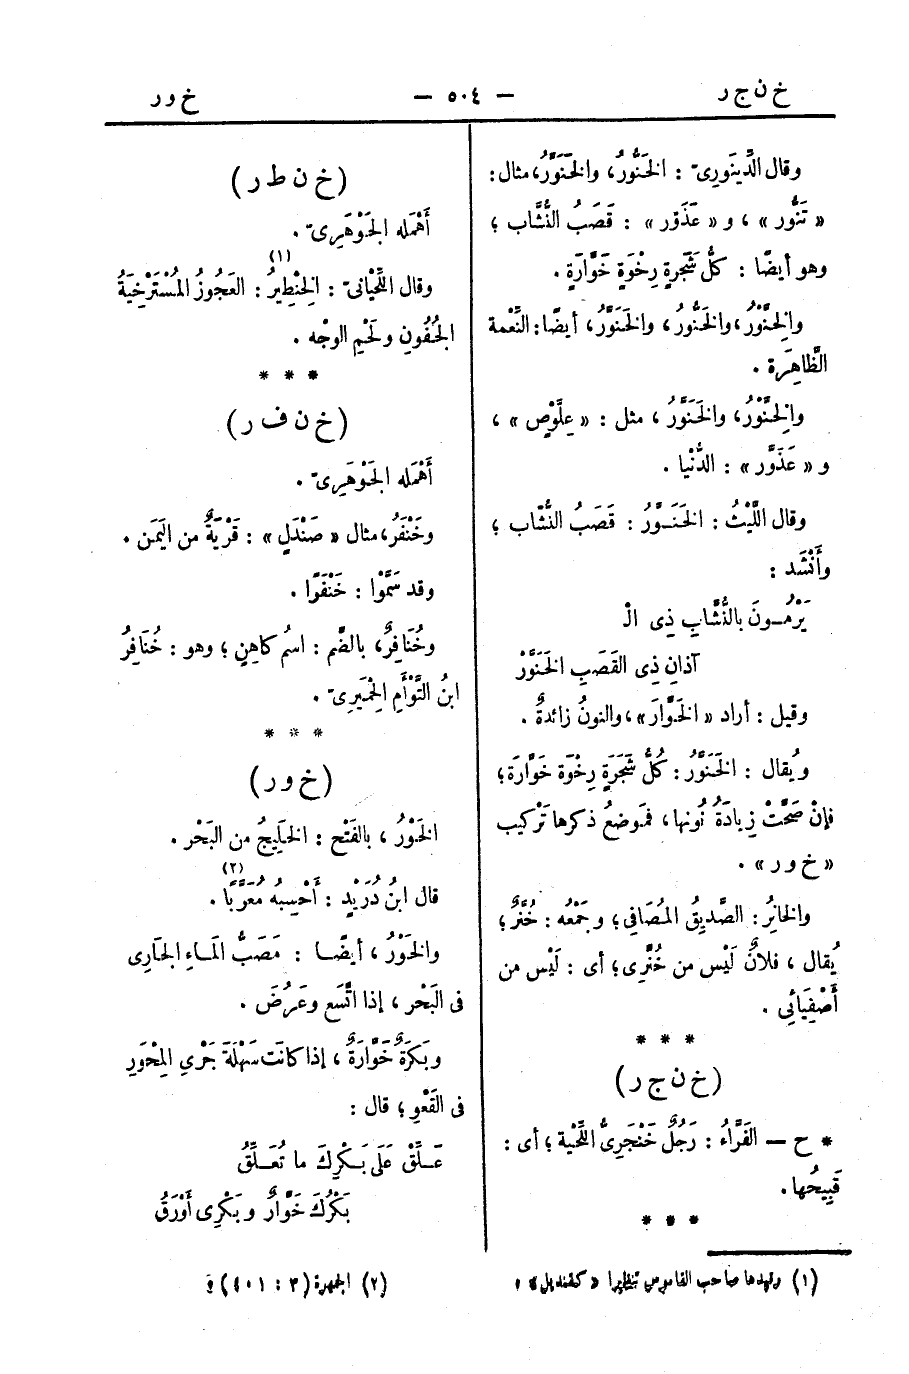 خ ن ج ر
— ٥٠٤ —
خ و ر
وقال الدِّينَوَرِىّ : الخَنُّورُ، والخَنَّوَّرُ، مثال :
« تَنُّور » ، و « عَذَوّر » : قَصَبُ النُّشَّاب ؛
وهو أيضًا : كلُّ شَجَرةٍ رِخْوَةٍ خَوَّارَةٍ .
والخِنَّوْرُ، والخَنُّورُ، والخَنَوَّرُ، أيضًا : النِّعْمة
الظَّاهِرَة .
والخِنَّوْرُ، والخَنَوَّرُ ، مثل : « عِلَّوْصٍ » ،
و « عَذَوَّر » : الدُّنْيا .
وقال اللَّيْثُ : الخَنَــوَّرُ : قَصَبُ النُّشّاب ؛
وأَنْشَد :
يَرْمُــونَ بالنُّشَّابِ ذِى الْ
آذانِ ذِى القَصَبِ الخَنَوَّرْ
وقيل : أراد « الخَوَّارَ»، والنونُ زائدةٌ .
ويُقال : الخَنَوَّرُ : كُلُّ شَجَرَةٍ رِخْوَة خَوَّارَة ؛
فإنْ صَحَّتْ زِيادَةُ نُونها، فمَوضعُ ذكرها تَرْكيب
« خ و ر » .
والخانِرُ : الصَّديقُ المُصَافِى ؛ وجَمْعُه : خُنَّرٌ ؛
يُقال ، فلانٌ لَيْس من خُنَّرِى ؛ أى : لَيْس من
أَصْفِيَائِى .
* * *
( خ ن ج ر )
* ح — الفَرَّاءُ : رَجُلٌ خَنْجَرِىُّ اللِّحْية ؛ أى :
قَبِيحُها .
* * *
( خ ن ط ر )
أَهْمَله الجَوْهَرِىّ .
وقال اللِّحْيانىّ : الخِنْطِيرُ (١) : العَجُوزُ المُسْتَرْخِيَةُ
الجُفُونِ ولَحْمِ الوجْه .
* * *
( خ ن ف ر )
أَهْمَله الجَوْهَرِىّ .
وخَنْفَرُ، مثال « صَنْدَلٍ » : قَرْيَةٌ من اليَمَن .
وقد سَمَّوْا : خَنْفَرًا .
وخُنَافِرٌ، بالضَّم : اسمُ كاهِنٍ ؛ وهو : خُنَافِرُ
ابنُ التَّوْأَمِ الحِمْيَرِىّ .
* * *
( خ و ر )
الخَوْرُ ، بالفَتْح : الخَلِيجُ من البَحْر .
قال ابنُ دُرَيْدٍ : أَحْسِبهُ مُعَرَّبًا (٢) .
والخَوْرُ ، أيضًــا : مَصَبُّ المَـاءِ الجَارِى
فى البَحْر ، إذا اتَّسَع وعَرُضَ .
وبَكَرَةٌ خَوَّارَةٌ ، إذا كانَت سَهْلَةَ جَرْىِ المِحْوَرِ
فى القَعْوِ ؛ قال :
عَــلِّقْ عَلَى بَـكْرِكَ ما تُعَــلِّقُ
بَكْرُكَ خَوَّارٌ وبَكْرِى أَوْرَقُ
(١) وقيدها صاحب القاموس تنظيرا « كقنديل » .
(٢) الجمهرة (٣ : ٤٠١)